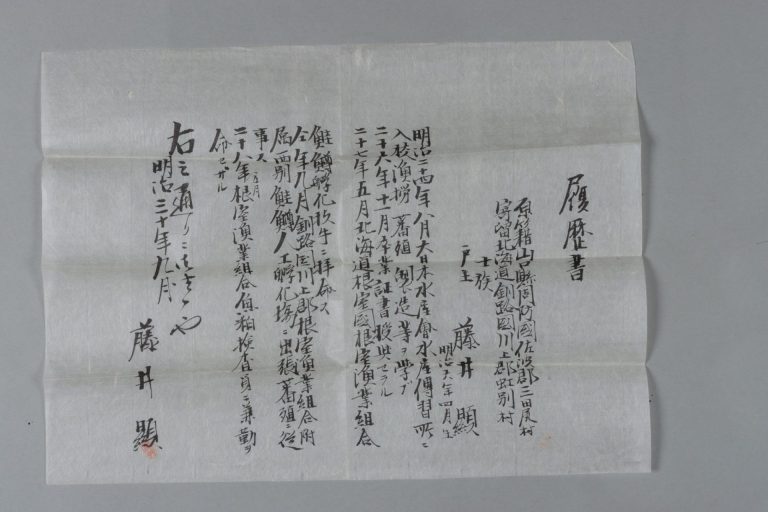 履歴書
原籍山口縣周防國佐波郡三田尻村
寄留北海道釧路國川上郡虹別村
士族
戸主 藤井顯
明治六年四月生
明治二十四年八月大日本水産會水産傳習所ニ
入校漁撈蕃殖製造等ヲ學ブ
二十六年十一月卒業証書授與セラル
二十七年五月北海道根室國根室漁業組合
鮭鱒孵化技手ニ拝命ス
仝年九月釧路國川上郡根室漁業組合附
属西別鮭鱒人工孵化場ニ出張蕃殖ニ従
事ス
二十八年 月根室漁業組合魚粕検査員ニ兼勤ヲ
命セラル
右之通リニ 也
明治三十年九月
藤井顯